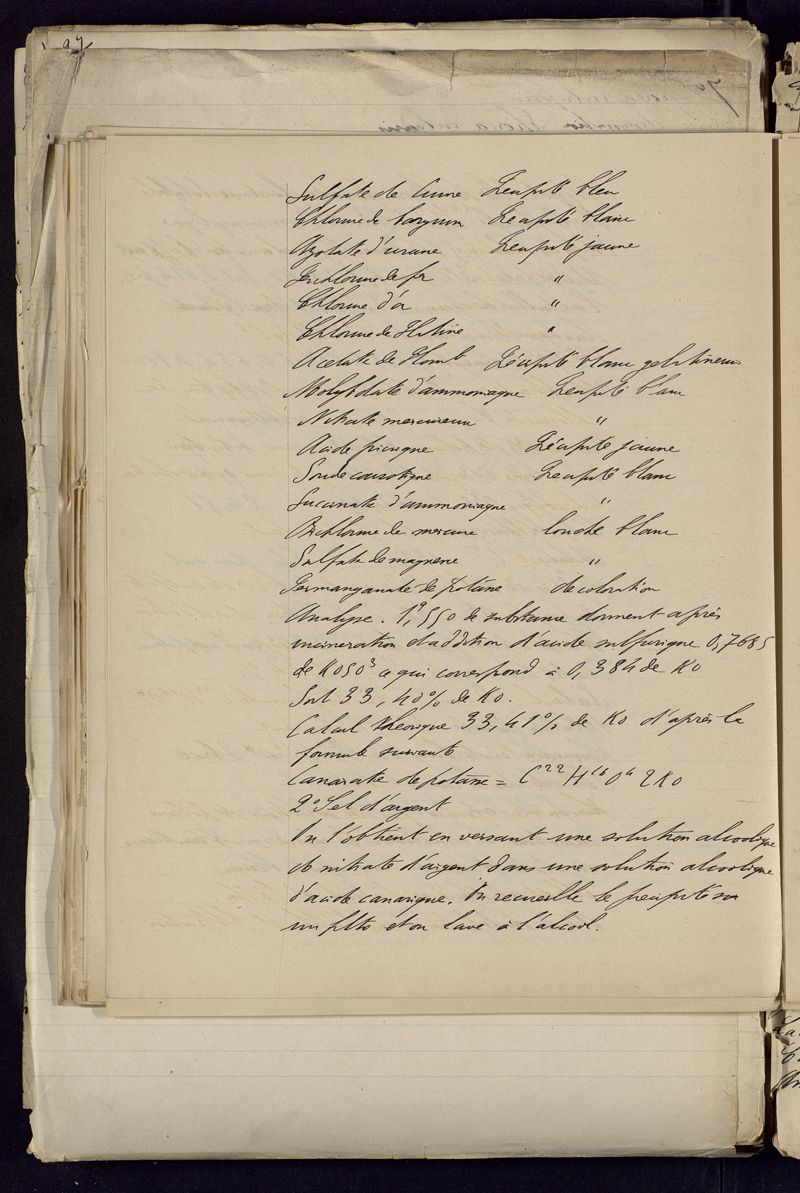 Sulfate de Cuivre Précipité bleu
Chlorure de baryum Précipité blanc
Azotate d'urane Précipité jaune
Perchlorure de fer "
Chlorure d'or "
Chlorure de Platine "
Acétate de Plomb Précipité blanc gélatineux
Molybdate d'ammoniaque Précipité blanc
Nitrate mercureux "
Acide picrique Précipité jaune
Soude caustique Précipité blanc
Succinate d'ammoniaque "
Bichlorure de mercure louche blanc
Sulfate de magnésie "
Permanganate de potasse décoloration
Analyse. 1g,550 de substance donnent après
incinération et addition d'acide sulfurique 0,7685
de KOSO³ ce qui correspond à 0,384 de KO
Soit 33,40% de KO.
Calcul théorique 33,41% de KO d'après la
formule suivante
Canarate de potasse = C²² H¹⁶ O⁴ 2KO
2° Sel d'argent
On l'obtient en versant une solution alcoolique
de nitrate d'argent dans une solution alcoolique
d'acide canarique. On recueille le précipité sur
un filtre et on lave à l'alcool.